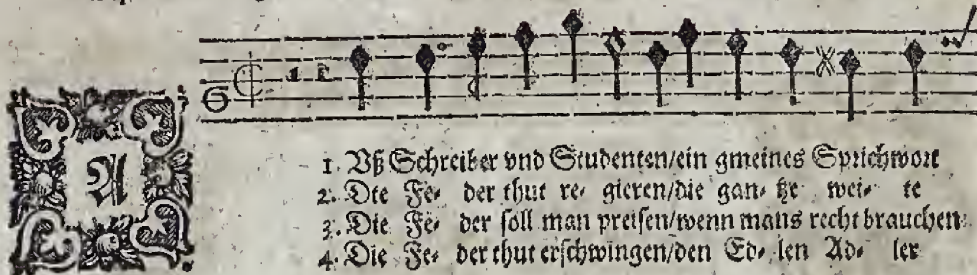 A
1. Vß Schreiber vnd Studenten/ein gmeines Sprichwort
2. Die Fe- der thut re- gieren/die gan- tze wei- te
3. Die Fe- der soll man preisen/wenn mans recht brauchen
4. Die Fe- der thut erschwingen/den Ed- len Ad- ler